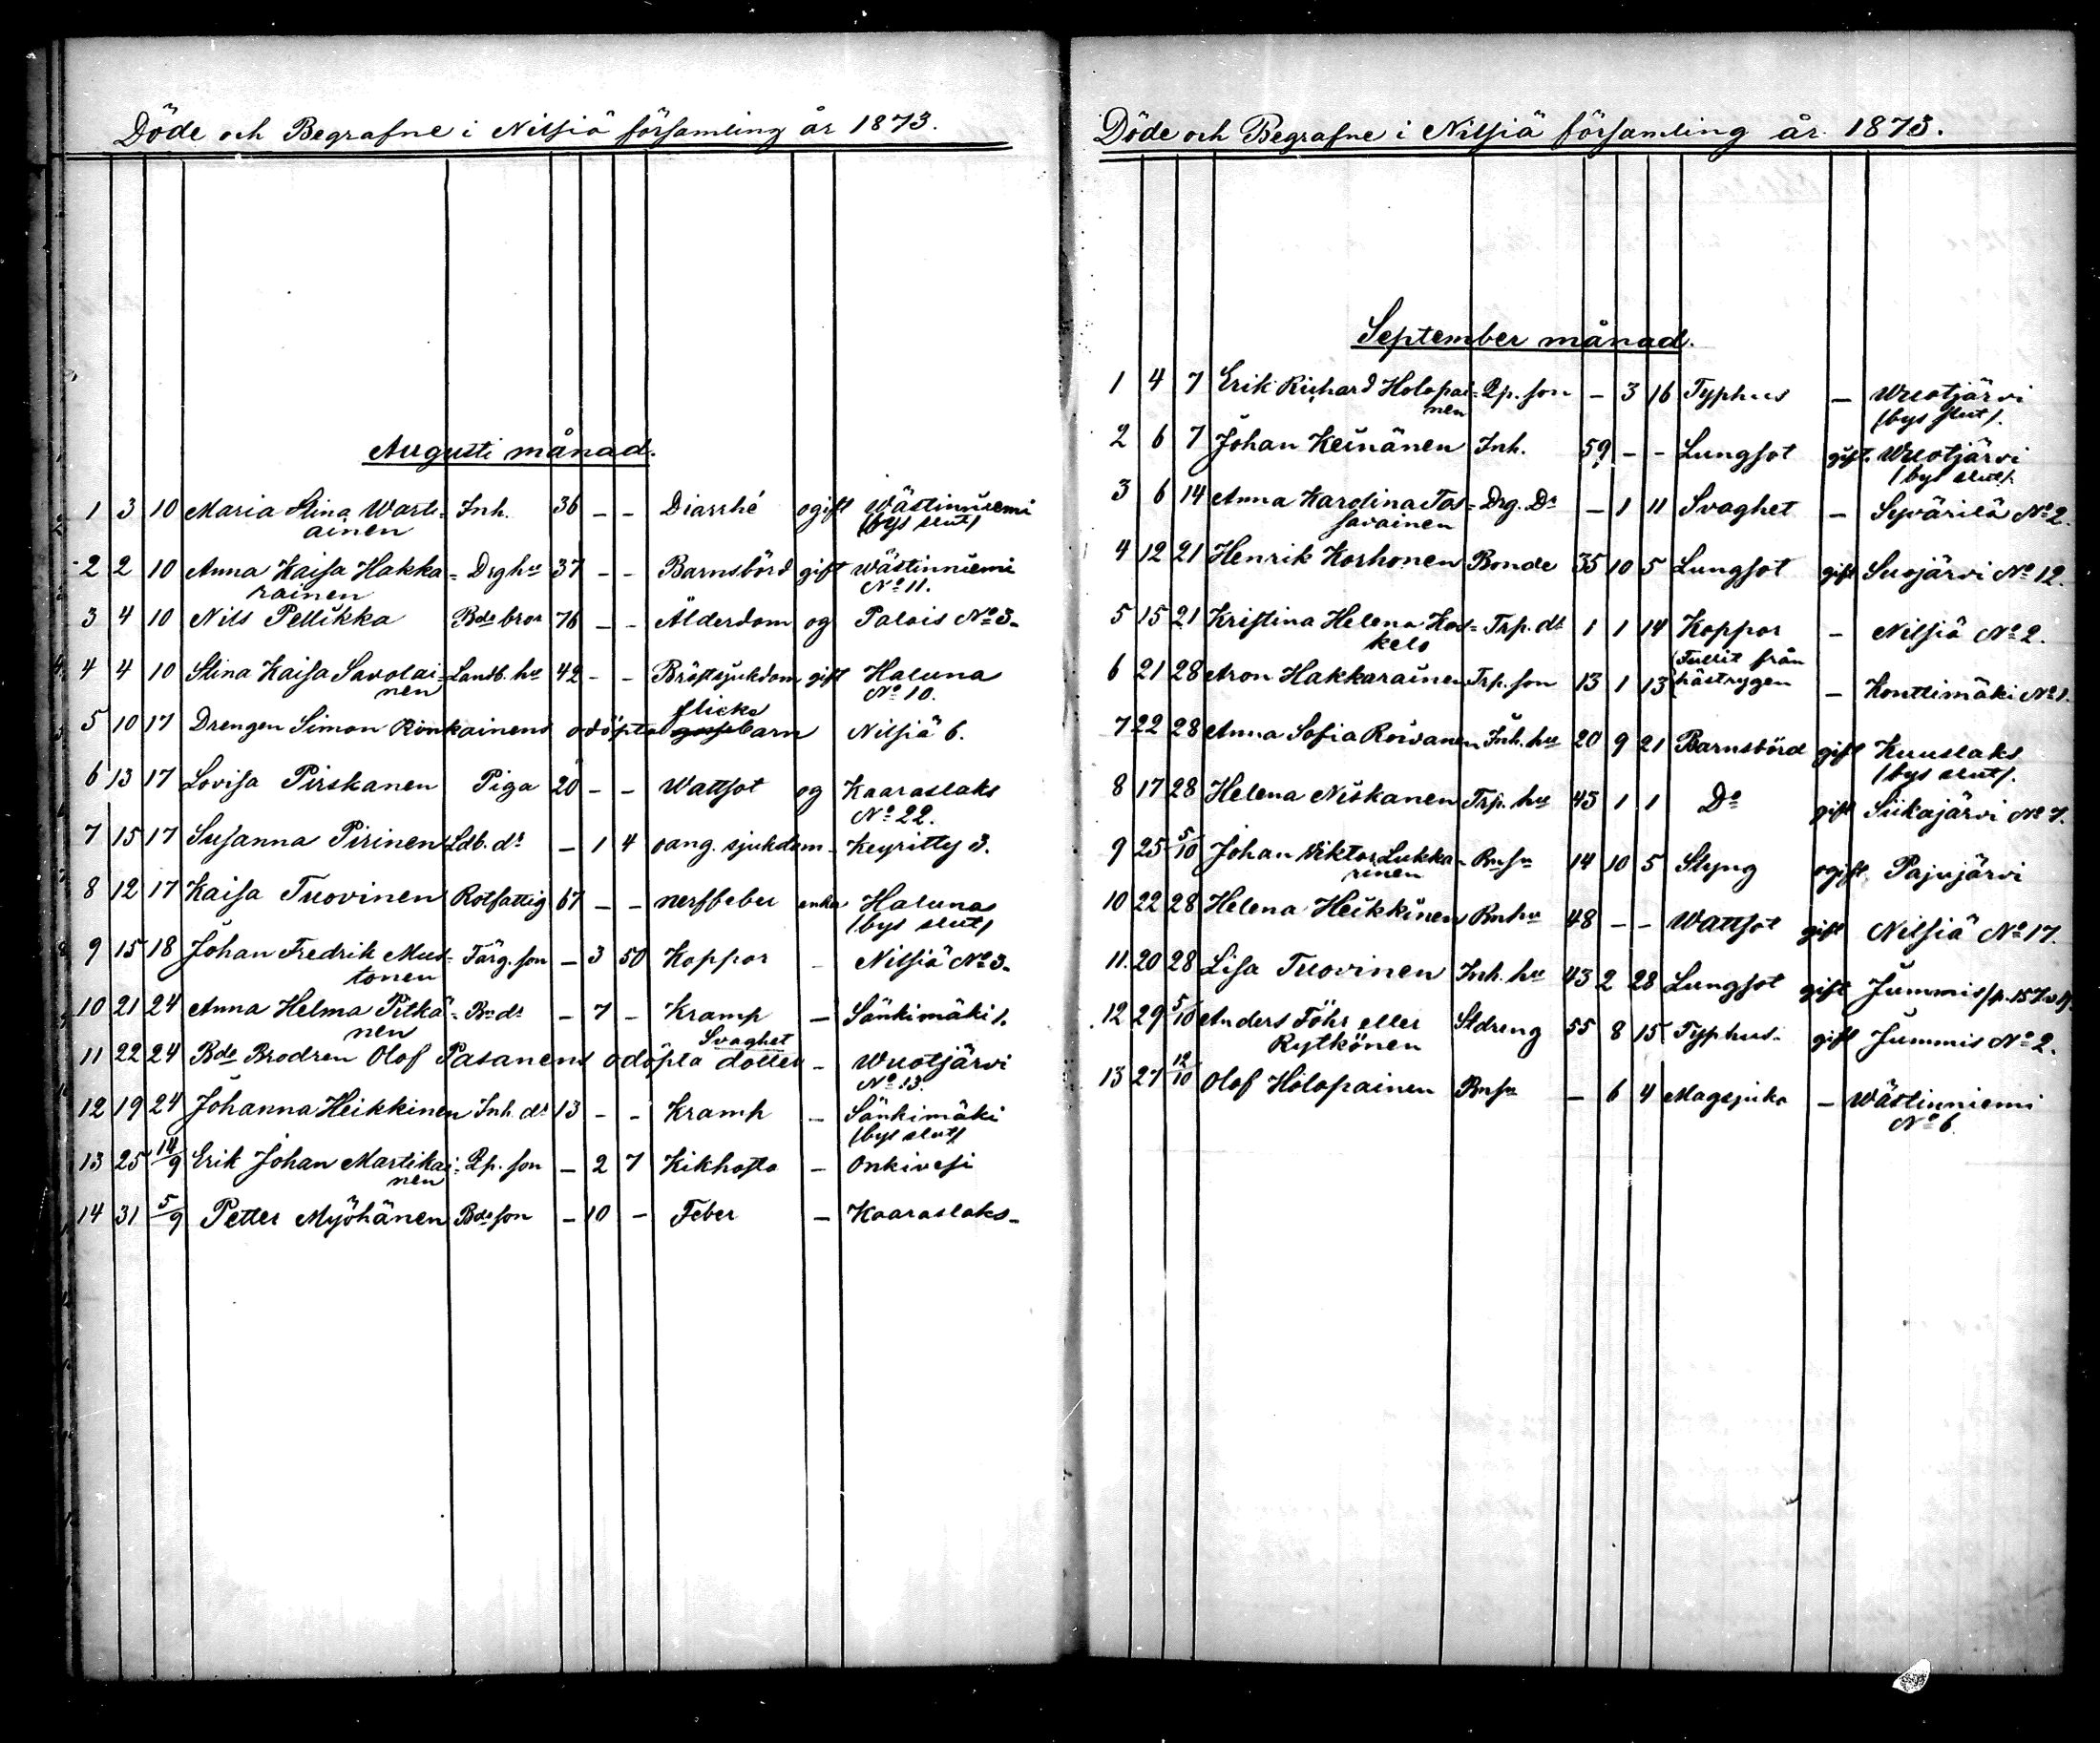 Döde och Begrafne i Nilsiä församling år 1873.
Augusti månad.
1 3 10 Maria Stina Warti= Inh. 36 - - Diarrhé ogift Wästinniemi
ainen (bys slut)
2 2 10 Anna Kaisa Hakka= Drg hu 37 - - Barnsbörd gift Wästinniemi
rainen No 11.
3 4 10 Nils Pellikka Bde bror 76 - - Ålderdom og Palois No 3.
4 4 10 Stina Kaisa Savolai= Landb. hu 42 - - Bröstsjukdom gift Haluna
nen No 10.
flicke
5 10 17 Drengen Simon Rönkainens odöpta gossebarn Nilsiä 6.
6 13 17 Lovisa Pirskanen Piga 20 - - Wattsot og Kaaraslaks
No 22.
7 15 17 Susanna Pirinen Ldb. dr - 1 4 oang. sjukdom - Keyritty 3.
8 12 17 Kaisa Tuovinen Rotfattig 67 - - nerffeber enka Haluna
(bys slut)
9 15 18 Johan Fredrik Mus= Färg. son - 3 50 Koppor - Nilsiä No 3.
tonen
10 21 24 Anna Helma Pitkä= Bn dr - 7 - Kramp - Sänkimäki 1.
nen Svaghet
11 22 24 Bde Brodren Olof Pasanens odöpta dotter - Wuotjärvi
No 13.
12 19 24 Johanna Heikkinen Inh. dr 13 - - Kramp - Sänkimäki
(bys slut)
13 25 14/9 Erik Johan Martikai= Lp. son - 2 7 Kikhosta - Onkivesi
nen
14 31 5/9 Petter Myöhänen Bde son - 10 - Feber - Kaaraslaks.
Döde och Begrafne i Nilsiä församling år 1873.
September månad.
1 4 7 Erik Richard Holopai= Lp. son - 3 16 Typhus - Wuotjärvi
nen (bys slut).
2 6 7 Johan Keinänen Inh. 59 - - Lungsot gift. Wuotjärvi
(bys slut).
3 6 14 Anna Karolina Tas= Drg. Dr - 1 11 Svaghet - Syvärilä No 2.
savainen
4 12 21 Henrik Korhonen Bonde 35 10 5 Lungsot gift Suojärvi No 12.
5 15 21 Kristina Helena Kos= Trp. dr 1 1 14 Koppor - Nilsiä No 2.
kelo
Fallit från
6 21 28 Aron Hakkarainen Trp. son 13 1 13 hästrygen - Konttimäki No 1.
7 22 28 Anna Sofia Roivanen Inh. hu 20 9 21 Barnsbörd gift Kuuslaks
(bys slut).
8 17 28 Helena Niskanen Trp. hu 45 1 1 Do gift Siikajärvi No 7.
9 25 5/10 Johan Viktor Lukka= Bn sn 14 10 5 Styng ogift Pajujärvi
rinen
10 22 28 Helena Heikkinen Bn hu 48 - - Wattsot gift Nilsiä No 17.
11. 20 28 Lisa Tuovinen Inh. hu 43 2 28 Lungsot gift Jummis
12 29 5/10 Anders Föhr eller Stdreng 55 8 15 Typhus. gift Jummis No 2.
Rytkönen
13 27 12/10 Olof Holopainen Bn sn - 6 4 Magsjuka - Wästinniemi
No 6.